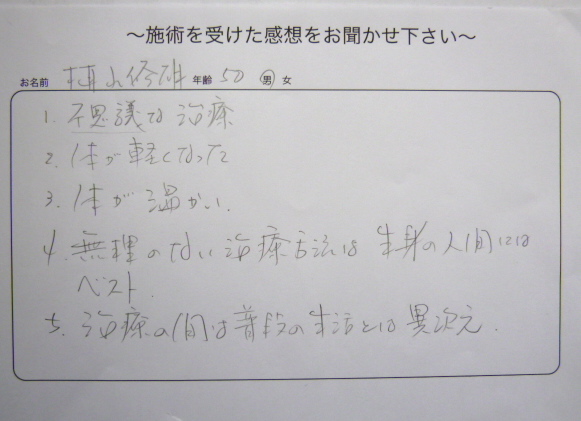 〜施術を受けた感想をお聞かせ下さい〜
お名前 年齢 50 男 女
1. 不思議な治療
2. 体が軽くなった
3. 体が温かい.
4. 無理のない治療方法は生身の人間には
ベスト.
5. 治療の間は普段の生活とは異次元.